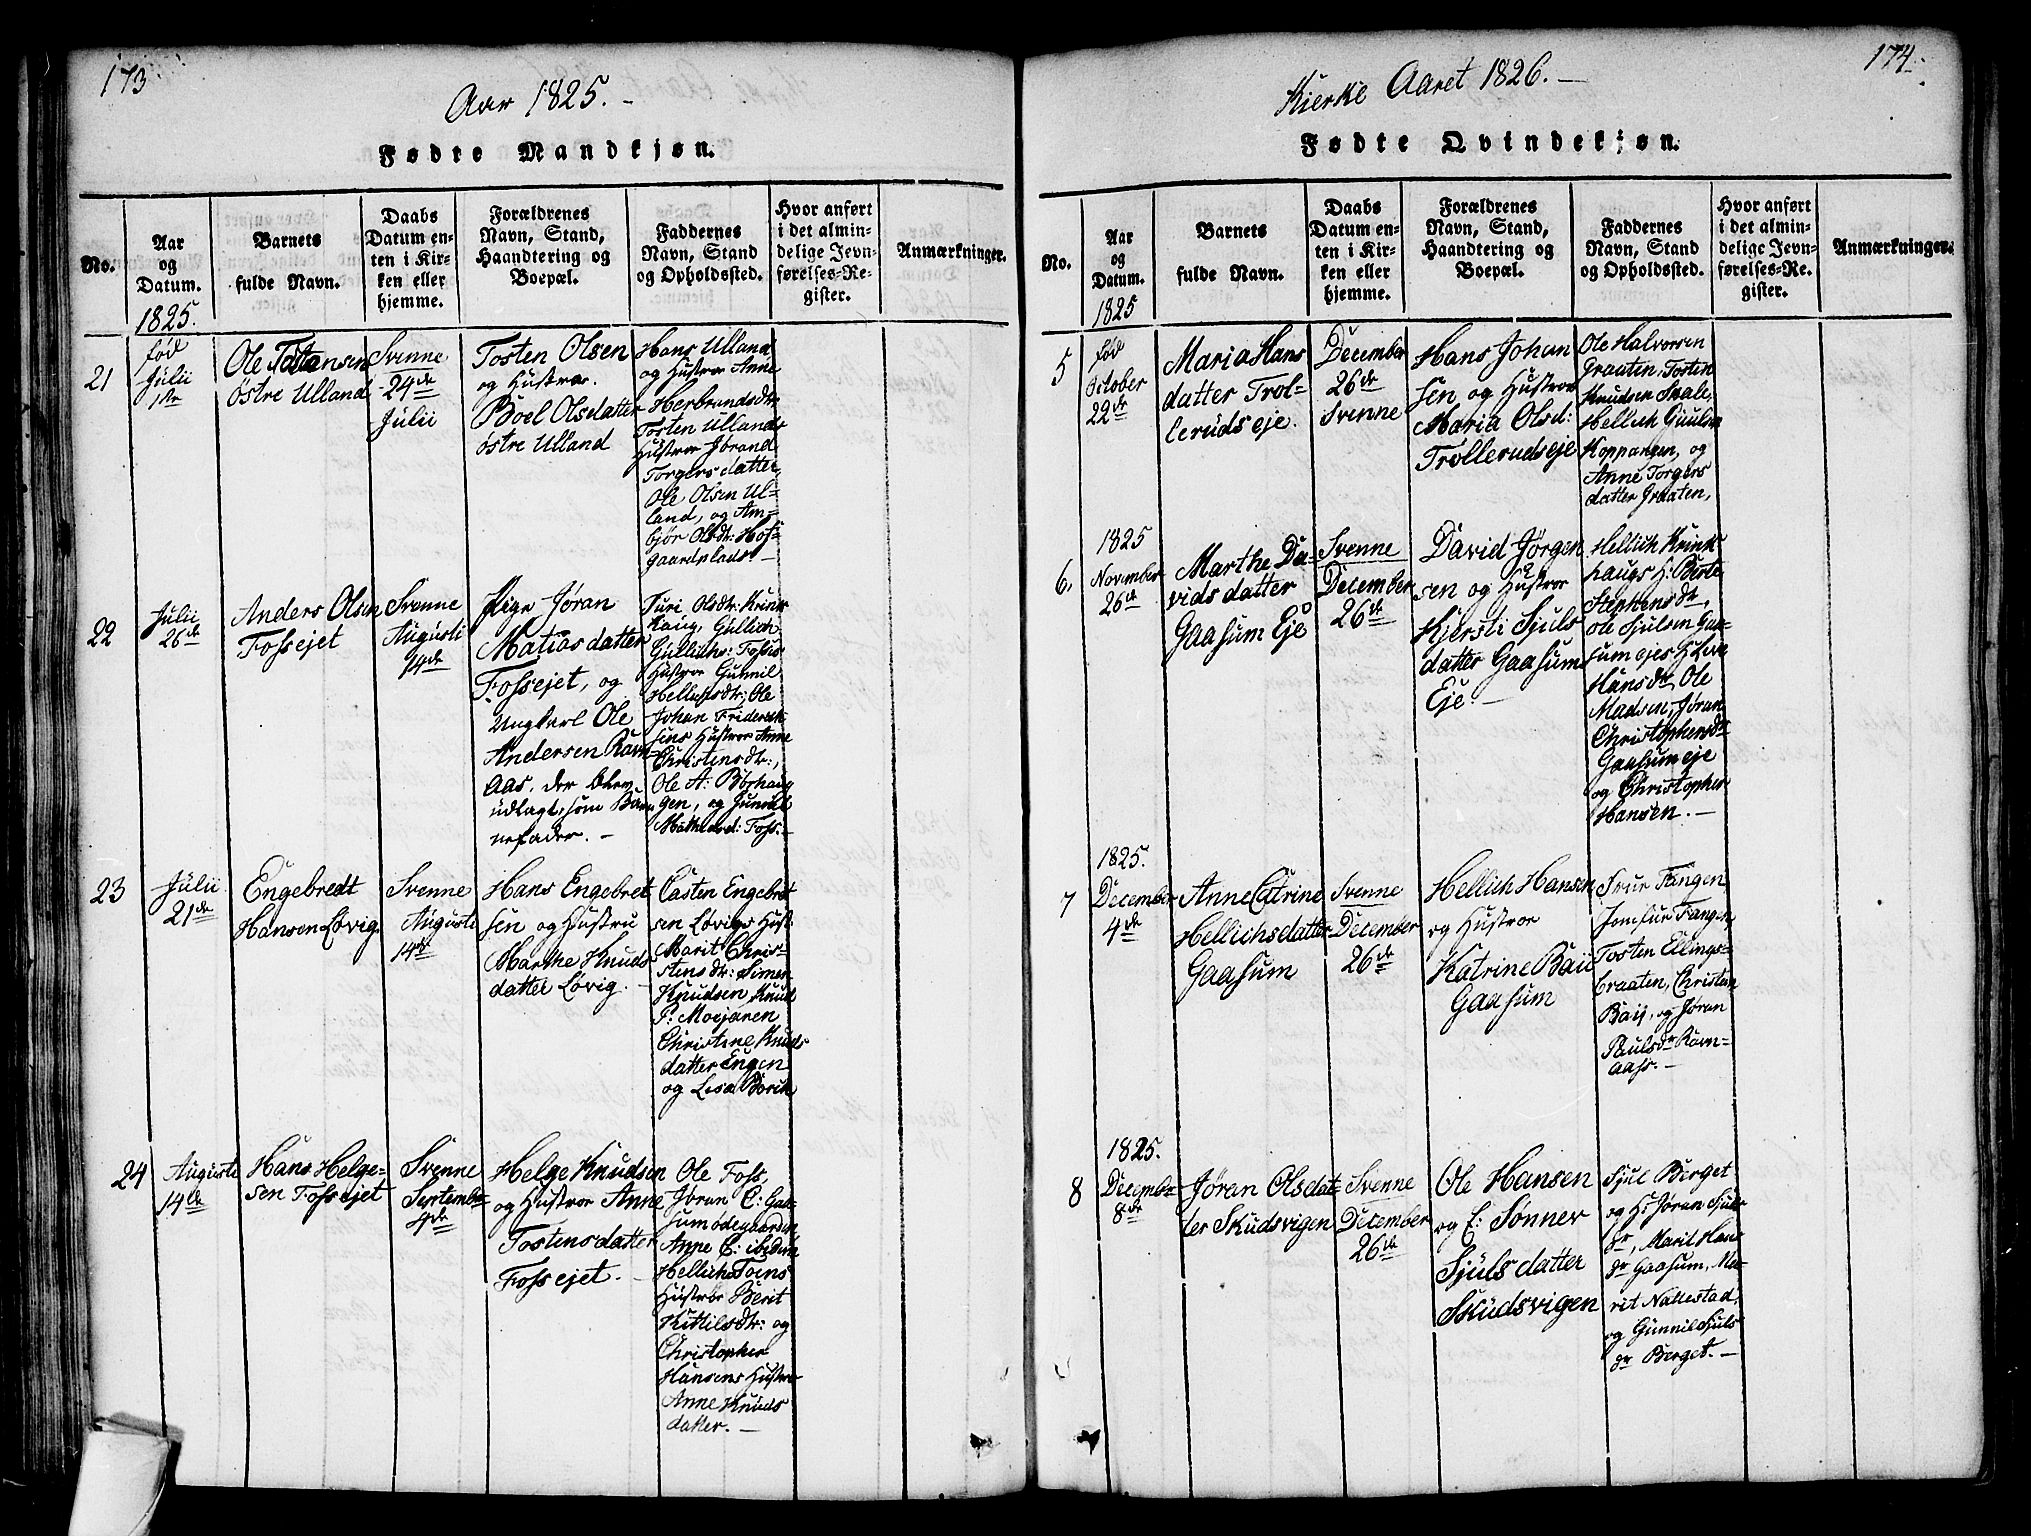 173
Aar 1825. –
Fødte Mandkjøn.
No.
Aar
og
Datum.
Barnets
fulde Navn.
Daabs
Datum en-
ten i Kir-
ken eller
hjemme.
Forældrenes
Navn, Stand,
Haandtering og
Boepæl.
Faddernes
Navn, Stand
og Opholdssted.
Hvor anført
i det almin-
delige Jevn-
førelses-Re-
gister.
Anmærkninger.
1825.
21
fød
Julii
1ste
Ole Tostensen
østre Ulland
Svenne
24de
Julii
Tosten Olsen
og Hustroe.
Boel Olsdatter
østre Ulland
Hans Ulland
og Hustroe Anne
Herbrandsdtr
Tosten Ullands
Hustroe Jørand
Torgersdatter,
Ole Olsen Ul-
land, og Am-
bjør Olsdtr: Hof-
gaardplads. –
22
Julii
26de
Anders Olsen
Fossejet
Svenne
Augusti
14de
Pige Jøran
Matiasdatter
Fossejet, og
Ungkarl Ole
Andersen Ravn-
Aas, der blev
udlagt som Bar-
nefader. –
Turi Olsdtr: Krink-
haug, Gullich
Gullichs: Foss's
Hustroe Gunnil
Hellichsdtr: Ole
Johan Friderich-
sens Hustroe Anne
Christensdtr:,
Ole A: Børhaug
gen, og Gunnil
Mathiasd: Foss. –
23
Julii
21de
Engebredt
Hansen Løvig.
Svenne
Augusti
14de
Hans Engebret
sen og Hustru
Marthe Knuds-
datter Løvig. –
Casten Engebret
sen Løvigs Hust:
Marit Chris-
tensdtr: Simen
Knudsen, Knud
P: Moejaren
Christine Knuds
datter Engen
og Lisa Børch
24
Augusti
14de
Hans Helge-
sen Fossejet
Svenne
September
4de
Helge Knudsen
og Hustroe Anne
Tostensdatter
Fossejet. –
Ole Foss,
Jøran E: Gaa-
sumødegaarden
Anne E: ibidem
Hellich Toens
Hustroe Berit
Kittilsdtr: og
Christopher
Hansens Hustroe
Anne Knuds
datter. –
174
Kierke Aaret 1826. –
Fødte Qvindekjøn.
No.
Aar
og
Datum.
Barnets
fulde Navn.
Daabs
Datum en-
ten i Kir-
ken eller
hjemme.
Forældrenes
Navn, Stand,
Haandtering og
Boepæl.
Faddernes
Navn, Stand
og Opholdssted.
Hvor anført
i det almin-
delige Jevn-
førelses-Re-
gister.
Anmærkninger.
1825
5
fød
October
22de
Maria Hans
datter Trol-
lerudseje.
December
26de
Svenne
Hans Johan
sen og Hustroe
Maria Olsd:
Trollerudseje
Ole Halvorsen
Graaten, Tosten
Knudsen Skale,
Hellich Guulsen
Koppangen, og
Anne Torgers
datter Graaten,
1825
6.
November
26de
Marthe Da-
vidsdatter
Gaasum Eje
Svenne
December
26de
David Jørgen
sen og Hustroe
Kjersti Sjuls
datter Gaasum
Eje. –
Hellich Krink
haugs H. Birte
Stephensdtr,
Ole Sjulsen Gaa-
sumejes H.
Hansdtr, Ole
Madsen, Jøran
Christophersdtr
Gaasumeje
og Christopher
Hansen. –
1825.
7
December
4de
Anne Catrine
Hellichsdatter
Gaasum
Svenne
December
26de
Hellich Hansen
og Hustroe
Katrine Baii
Gaasum
Svur Fangen
Jomfru Fangen,
Tosten Ellings-
braaten, Christen
Baij, og Jøran
Paulsdr Ravn-
aass. –
1825.
8
December
8de
Jøran Olsdat-
ter Skudsvigen
Svenne
December
26de
Ole Hansen
og E: Sønnev
Sjulsdatter
Skudsvigen
Sjul Berget
og H: Jøran Sjuls
dr, Marit Hans
dr Gaasum, Ma-
rit Nallestad,
og Gunnil Sjuls
dr Berget. –